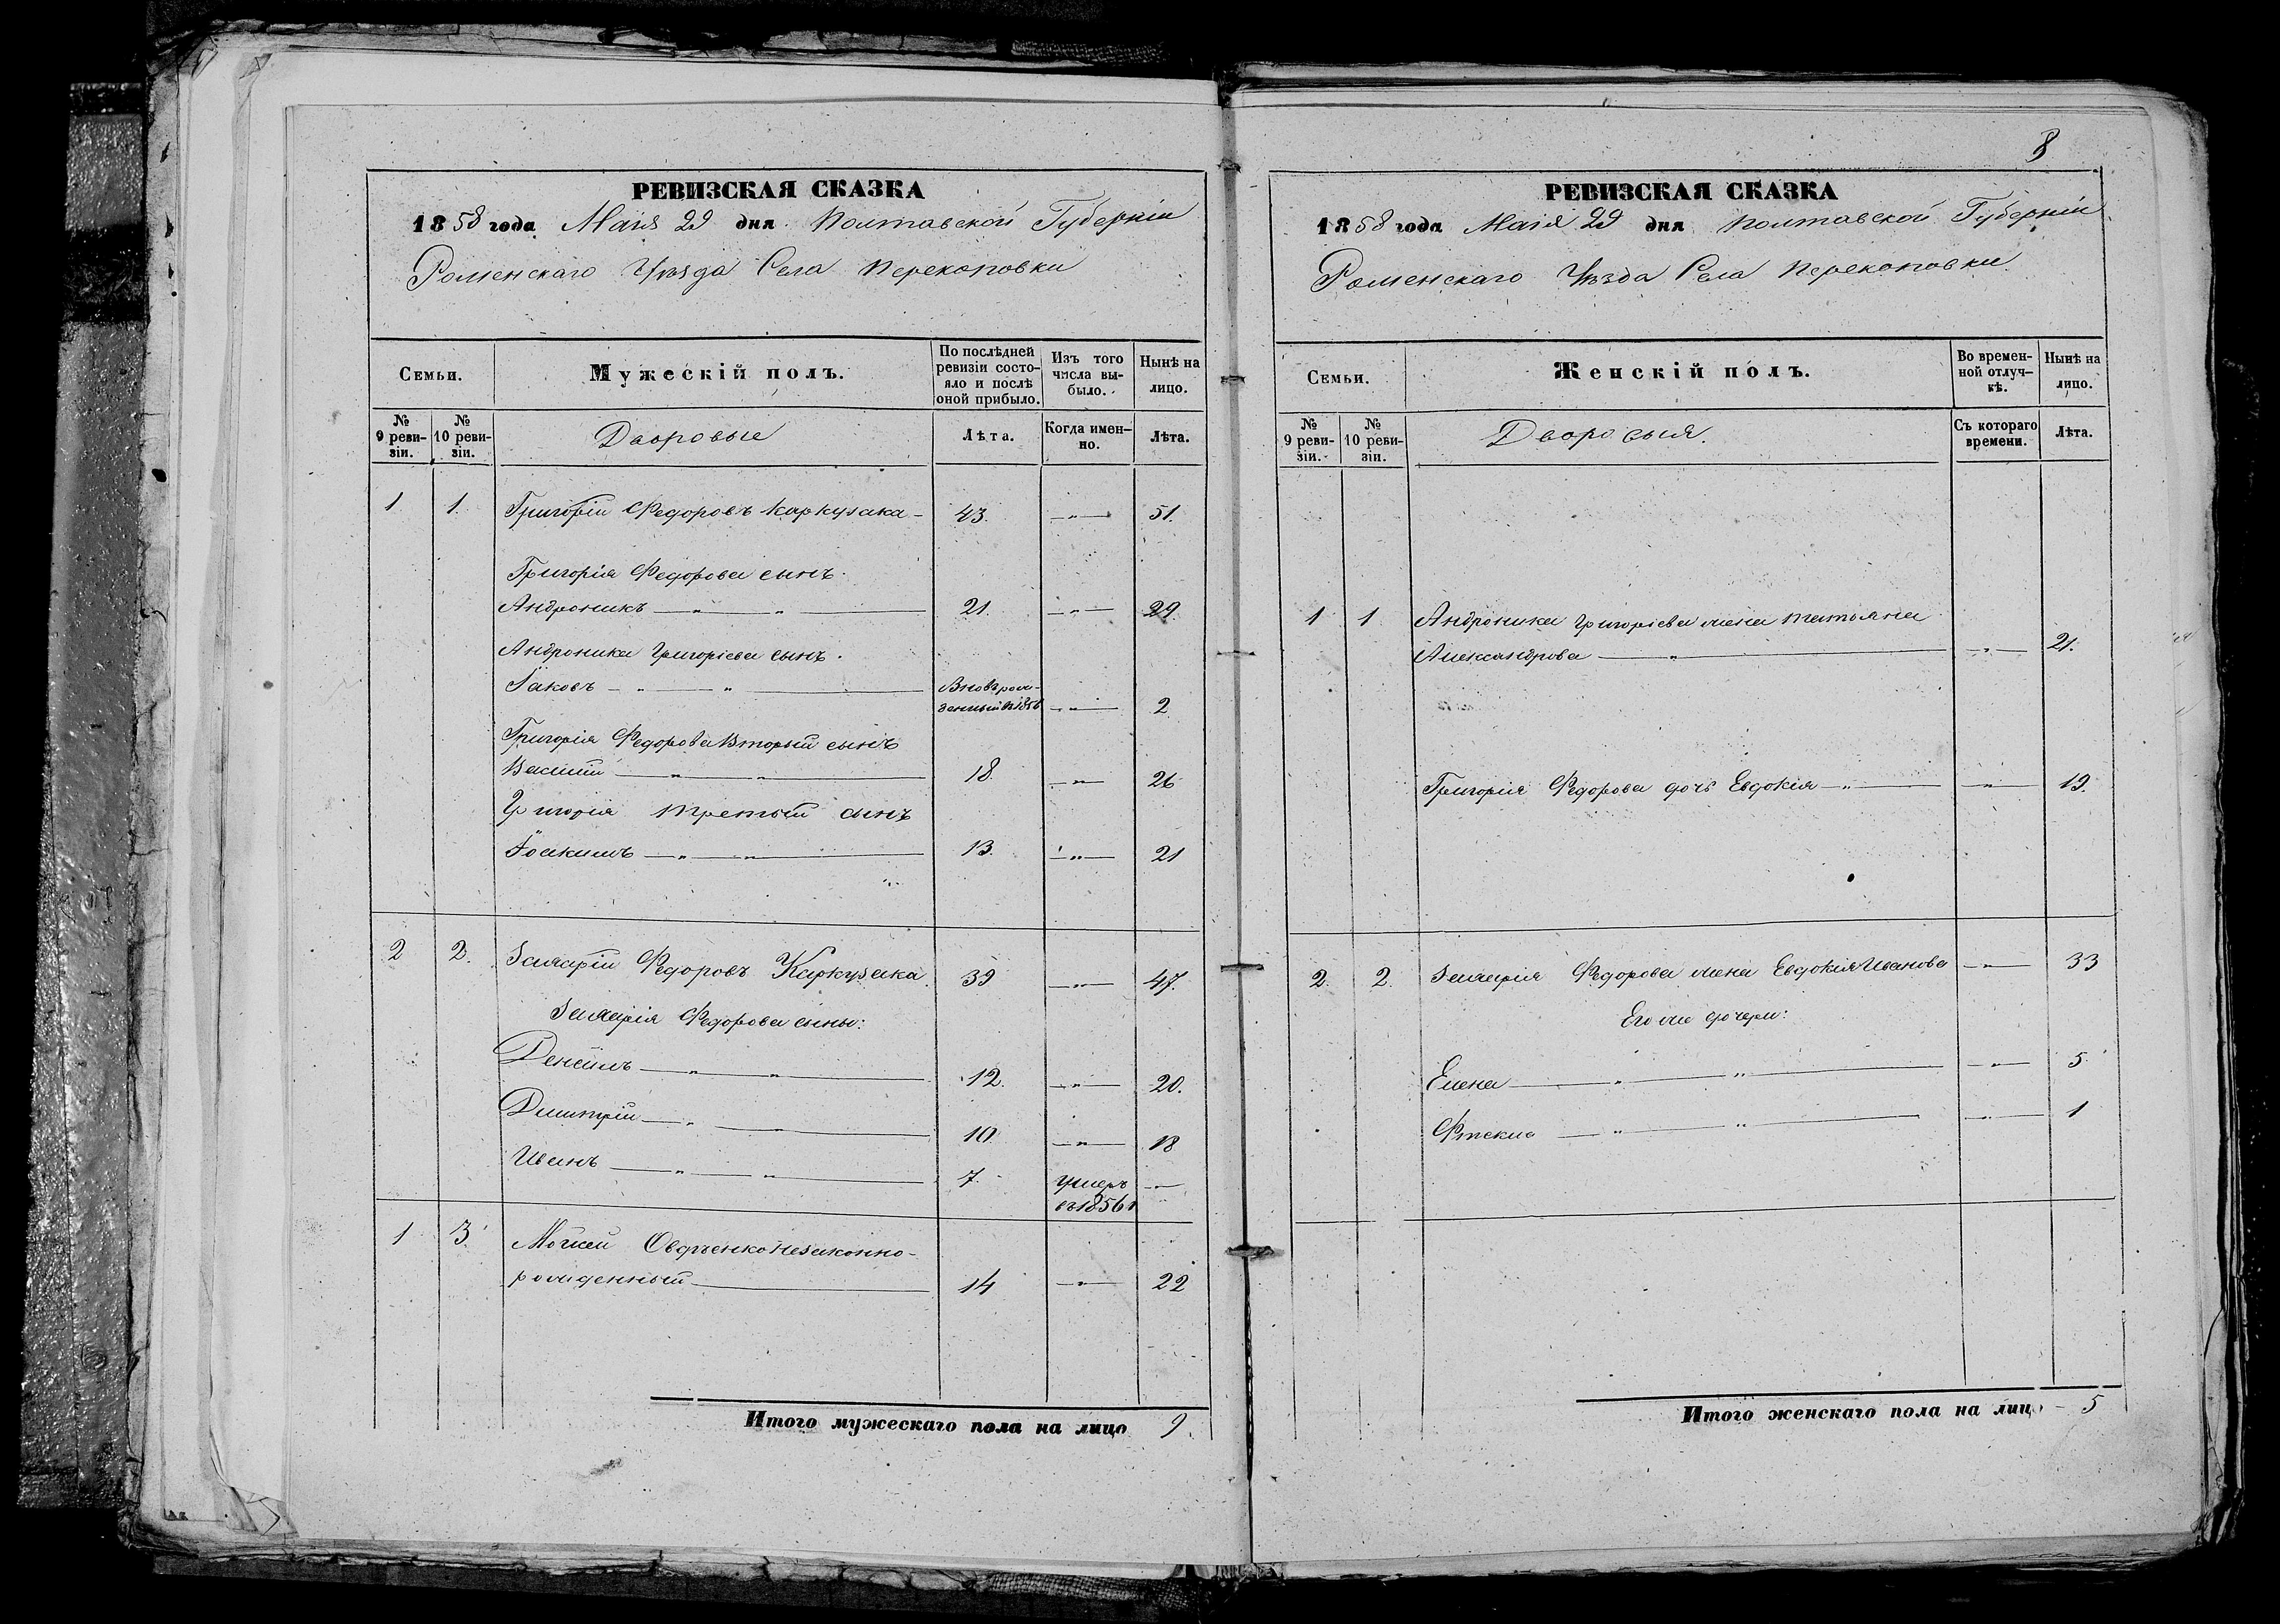 РЕВИЗСКАЯ СКАЗКА
1858 года Маія 29 дня Полтавской Губерніи
Роменскаго Уѣзда Села Перекоповки
Семьи.
Мужескій полъ.
По послѣдней ревизіи состо-
яло и послѣ
оной прибыло.
Изъ того
числа вы-
было.
Нынѣ на
лицо.
№
9 реви-
зіи.
№
10 реви-
зіи.
Дворовые
Лѣта.
Когда имен-
но.
Лѣта.
1 1. Григорій Федоровъ Каркузака 43. —"— 51.
Григорія Федорова сынъ
Андроникъ —"—"— 21. —"— 29.
Андроника Григоріева сынъ
Іаковъ —"—"— Вновь рож-
денный въ 1856 —"— 2
Григорія Федорова Вторый сынъ
Василій —"—"— 18. —"— 26
Григорія третий сынъ
Іоакимъ —"—"— 13. —"— 21
2 2. Захарій Федоровъ Каркузака 39 —"— 47.
Захарія Федорова сыны:
Денисъ —"—"— 12. —"— 20.
Дмитрій —"—"— 10. —"— 18
Иванъ —"—"— 7. умеръ —"—
въ 1856 г
1 3. Мойсей Овдѣенко незаконно-
рожденный — 14 —"— 22
Итого мужескаго пола на лицо 9.
8
РЕВИЗСКАЯ СКАЗКА
1858 года Маія 29 дня Полтавской Губерніи
Роменскаго Уѣзда Села Перекоповки
Семьи.
Женскій полъ.
Во времен-
ной отлуч-
кѣ.
Нынѣ на
лицо.
№
9 реви-
зіи.
№
10 реви-
зіи.
Дворовыя.
Съ котораго
времени.
Лѣта.
1 1 Андроника Григоріева жена Татьяна
Александрова —"— —"— 21.
Григорія Федорова дочь Евдокія —"— —"— 19.
2. 2. Захарія Федорова жена Евдокія Иванова —"— 33
Его же дочери:
Елена —"—"— —"— 5.
—"—"— —"— 1
Итого женскаго пола на лицо – 5